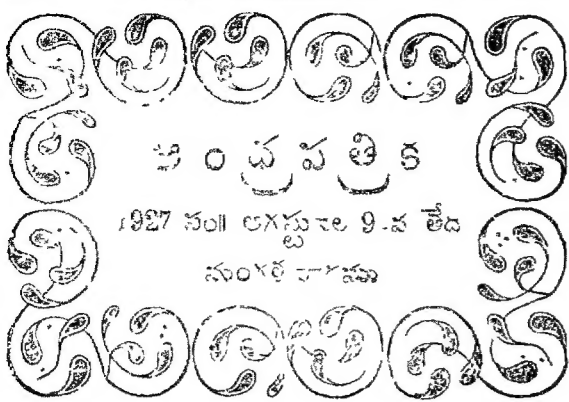 ఆంధ్రపత్రిక
1927 సం॥ ఆగస్టునెల 9-వ తేది
మంగళవారము